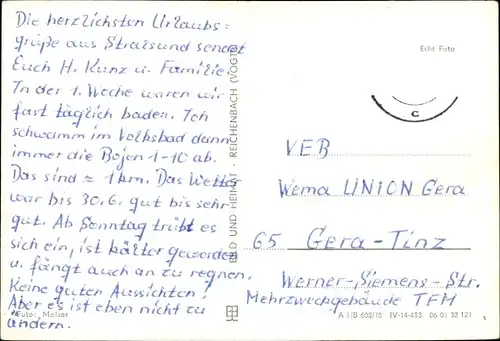 Die herzlichsten Urlaubs=
grüße aus Stralsund sendet
Euch H. Kunz u. Familie.
In der 1. Woche waren wir
fast täglich baden. Ich
schwamm im Volksbad dann
immer die Bojen 1-10 ab.
Das sind ≈ 1km. Das Wetter
war bis 30.6. gut bis sehr
gut. Ab Sonntag trübt es
sich ein, ist kälter geworden
u. fängt auch an zu regnen.
Keine guten Aussichten!
Aber es ist eben nicht zu
ändern.
Foto: Melzer
BILD UND HEIMAT · REICHENBACH (VOGTL)
Echt Foto
C
VEB
Wema UNION Gera
65 Gera-Tinz
Werner-Siemens-Str.
Mehrzweckgebäude TFM
A 1 B 603/78 IV-14-483 06 01 32 121